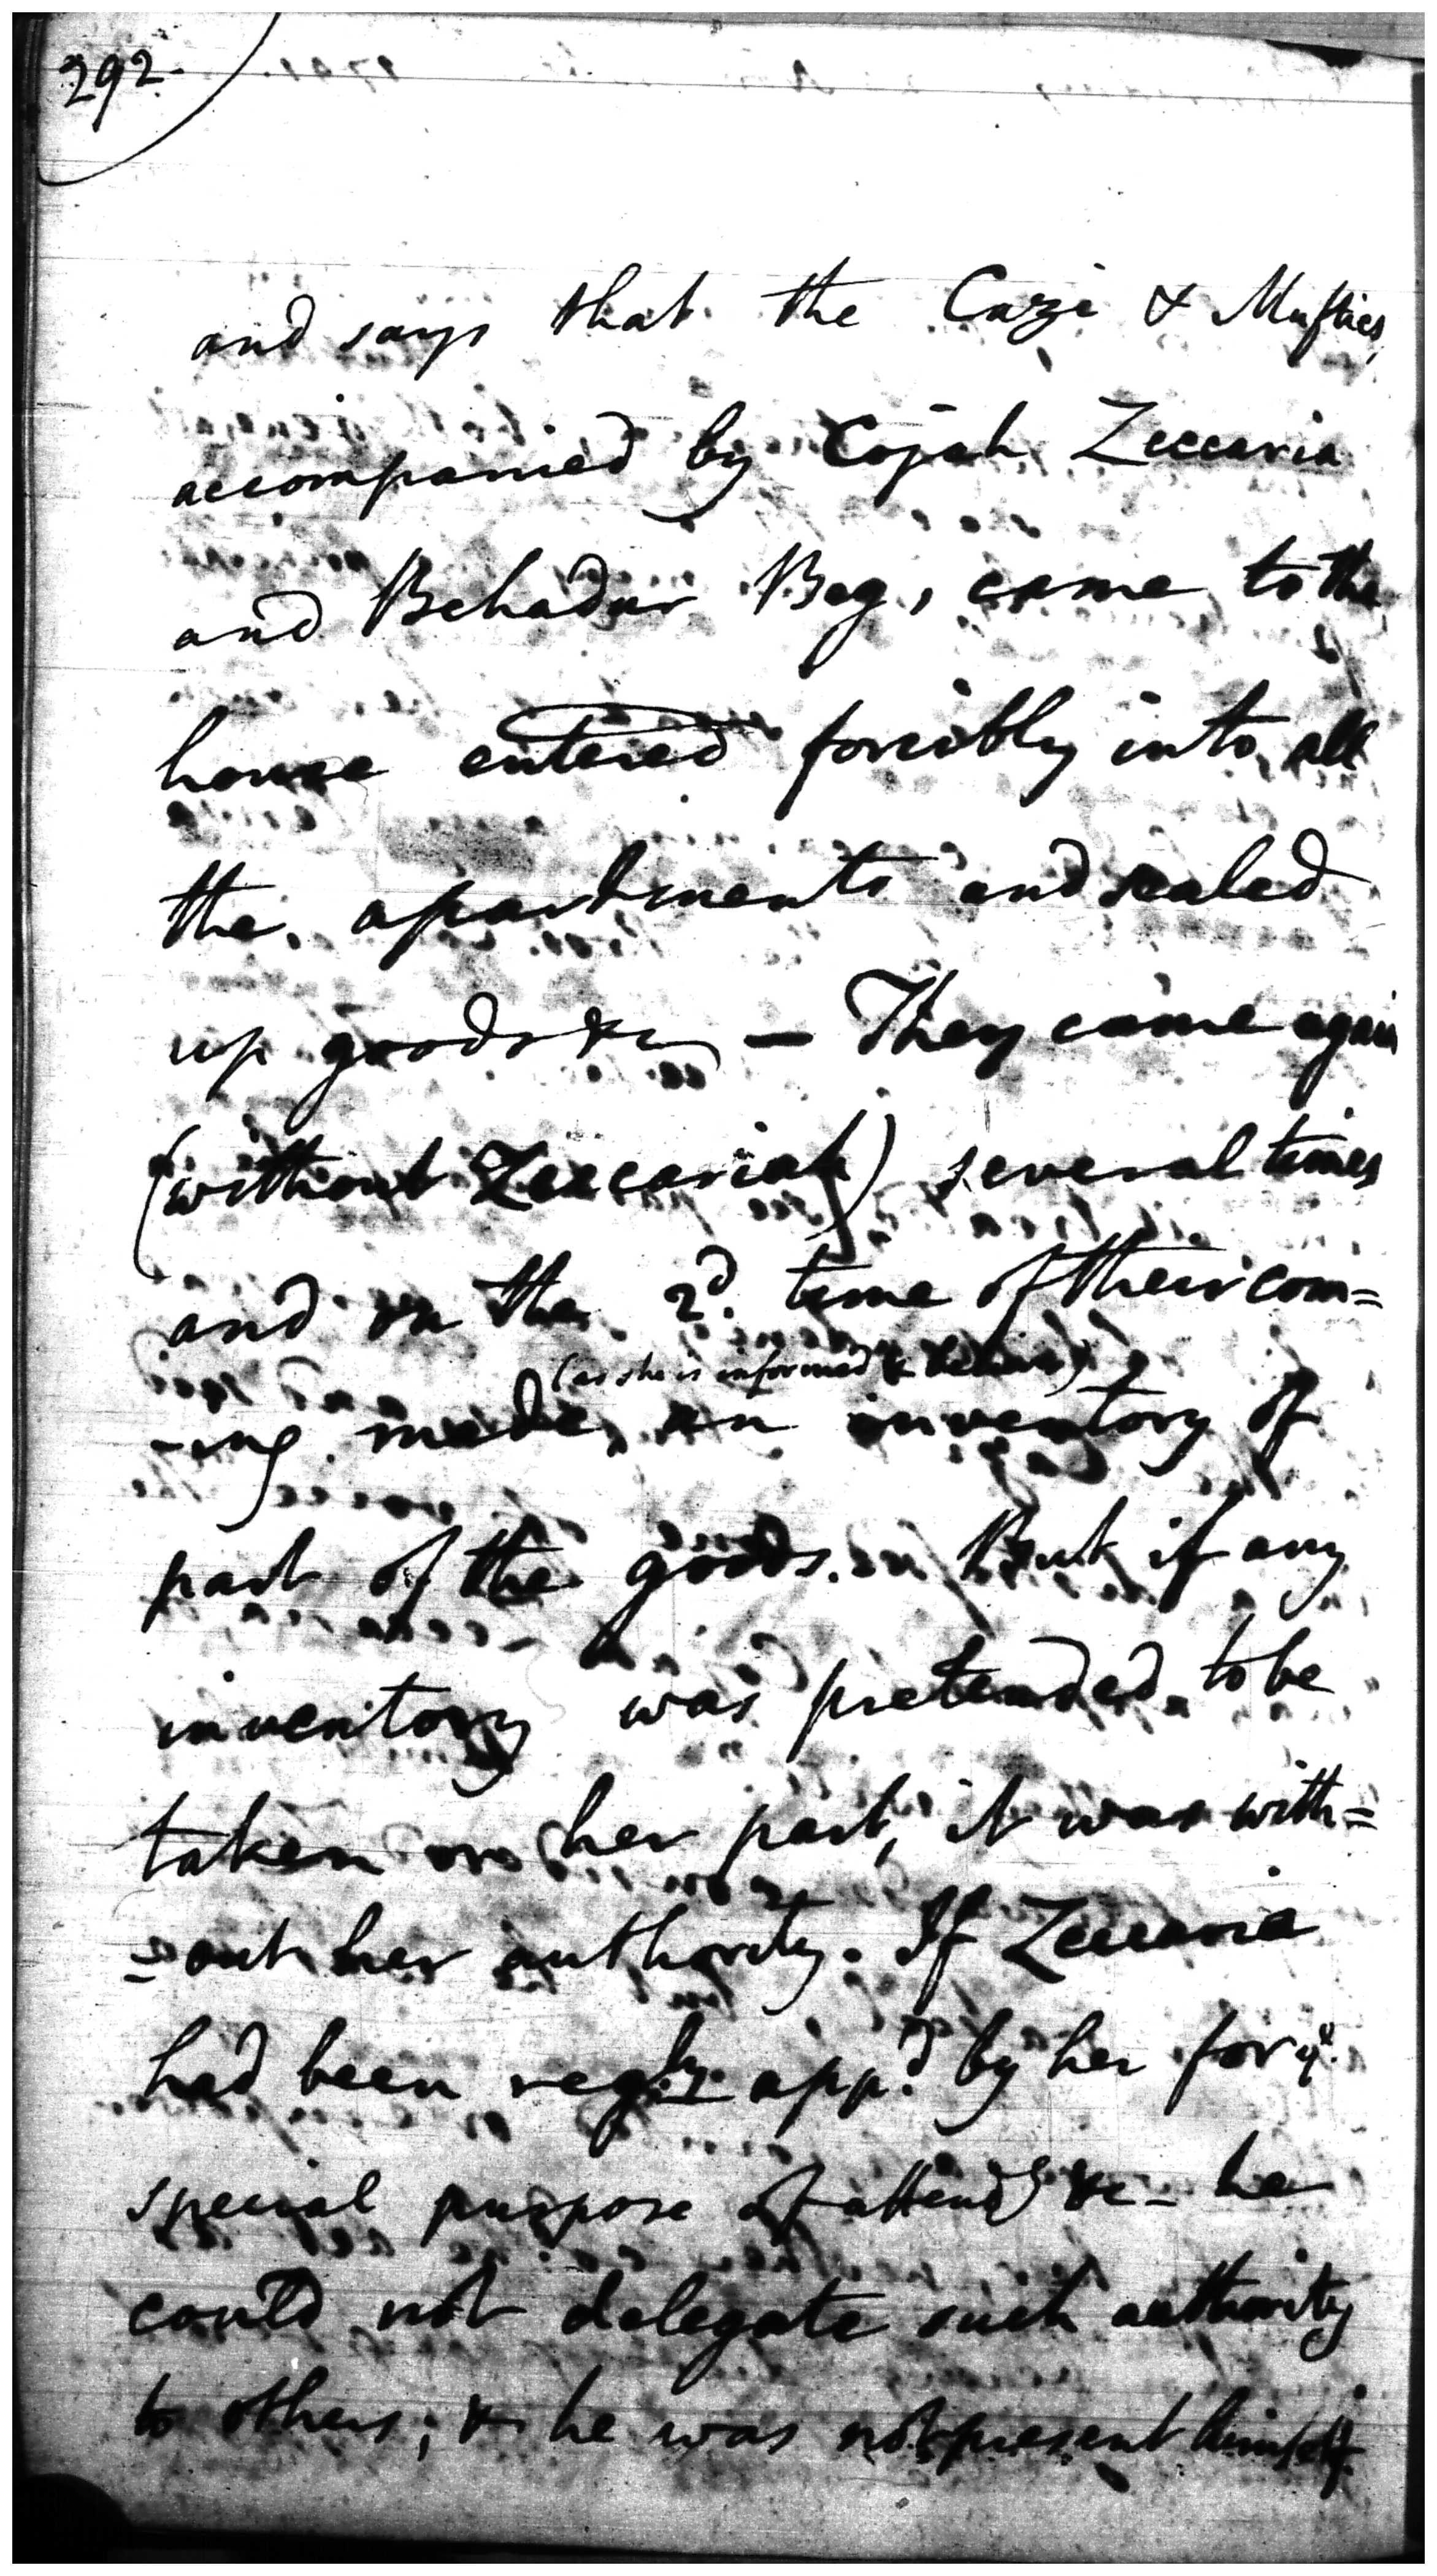 292.
and says that the Cazi & Mufties,
accompanied by Cojah Zeccaria
and Behadur Beg, came to the
house entered forcibly into all
the apartments and sealed
up goods &c — They came again
(without Zeccariah) several times
and on the 2d. time of their com=
(as she is informed & believes)
-ing made, an inventory of
part of the goods. But if any
inventory was pretended to be
taken on her part, it was with=
=out her authority. If Zeccaria
had been regly. appd. by her for ye.
special purpose of attendg &c - he
could not delegate such authority
to others; & he was not present himself.